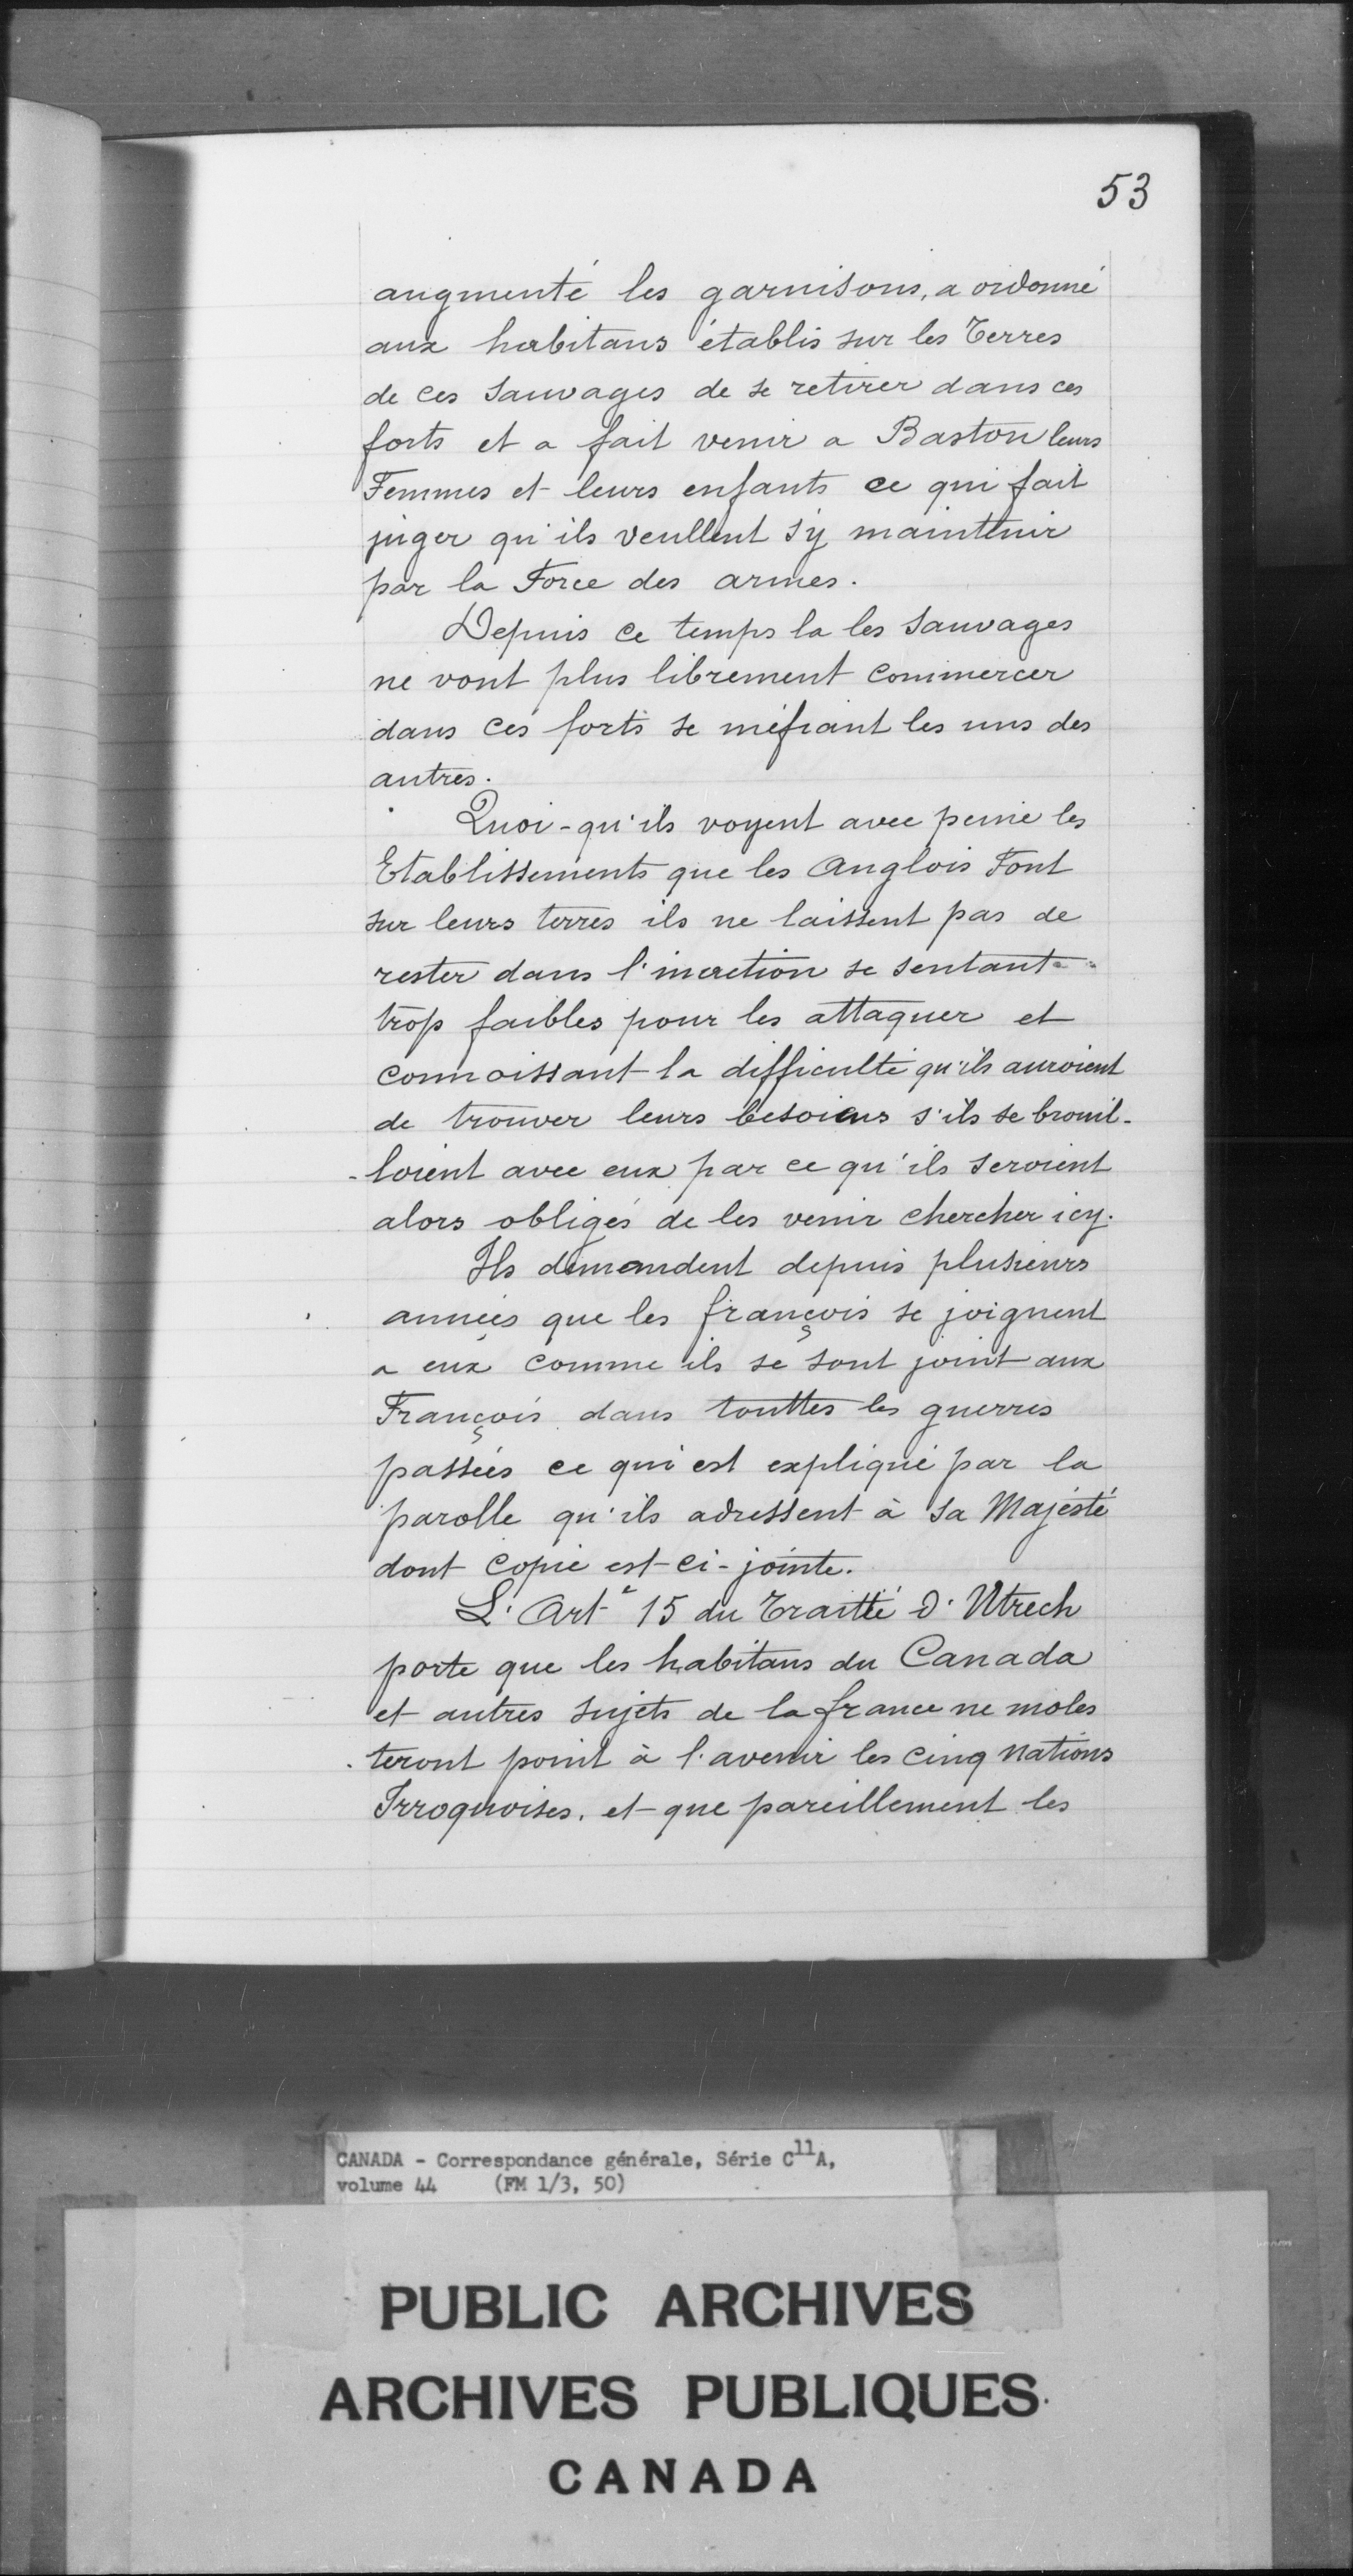 53
augmenté les garnisons, a ordonné
aux habitans établis sur les Terres
de ces Sauvages de se retirer dans ces
forts et a fait venir a Baston leurs
Femmes et leurs enfants ce qui fait
juger qu'ils veullent s'y maintenir
par la Force des armes.
Depuis ce temps la les Sauvages
ne vont plus librement commercer
dans ces forts se méfiant les uns des
autres.
Quoi-qu'ils voyent avec peine les
Etablissements que les Anglois Font
sur leurs terres ils ne laissent pas de
rester dans l'inaction se sentant
trop faibles pour les attaquer et
connoissant la difficulté qu'ils auroient
de trouver leurs besoiens s'ils se brouil-
-loient avec eux par ce qu'ils seroient
alors obligés de les venir chercher icy.
Ils demandent depuis plusieurs
années que les françois se joignent
a eux comme ils se sont joint aux
François dans touttes les guerres
passées ce qui est expliqué par la
parolle qu'ils adressent à Sa Majesté
dont copie est ci-jointe.
L'Art.e 15 du Traitté d'Utrech
porte que les habitans du Canada
et autres sujets de la france ne moles
-teront point à l'avenir les cinq Nations
Irroquoises, et que pareillement les
CANADA - Correspondance générale, Série C11A,
volume 44 (FM 1/3, 50)
PUBLIC ARCHIVES
ARCHIVES PUBLIQUES
CANADA